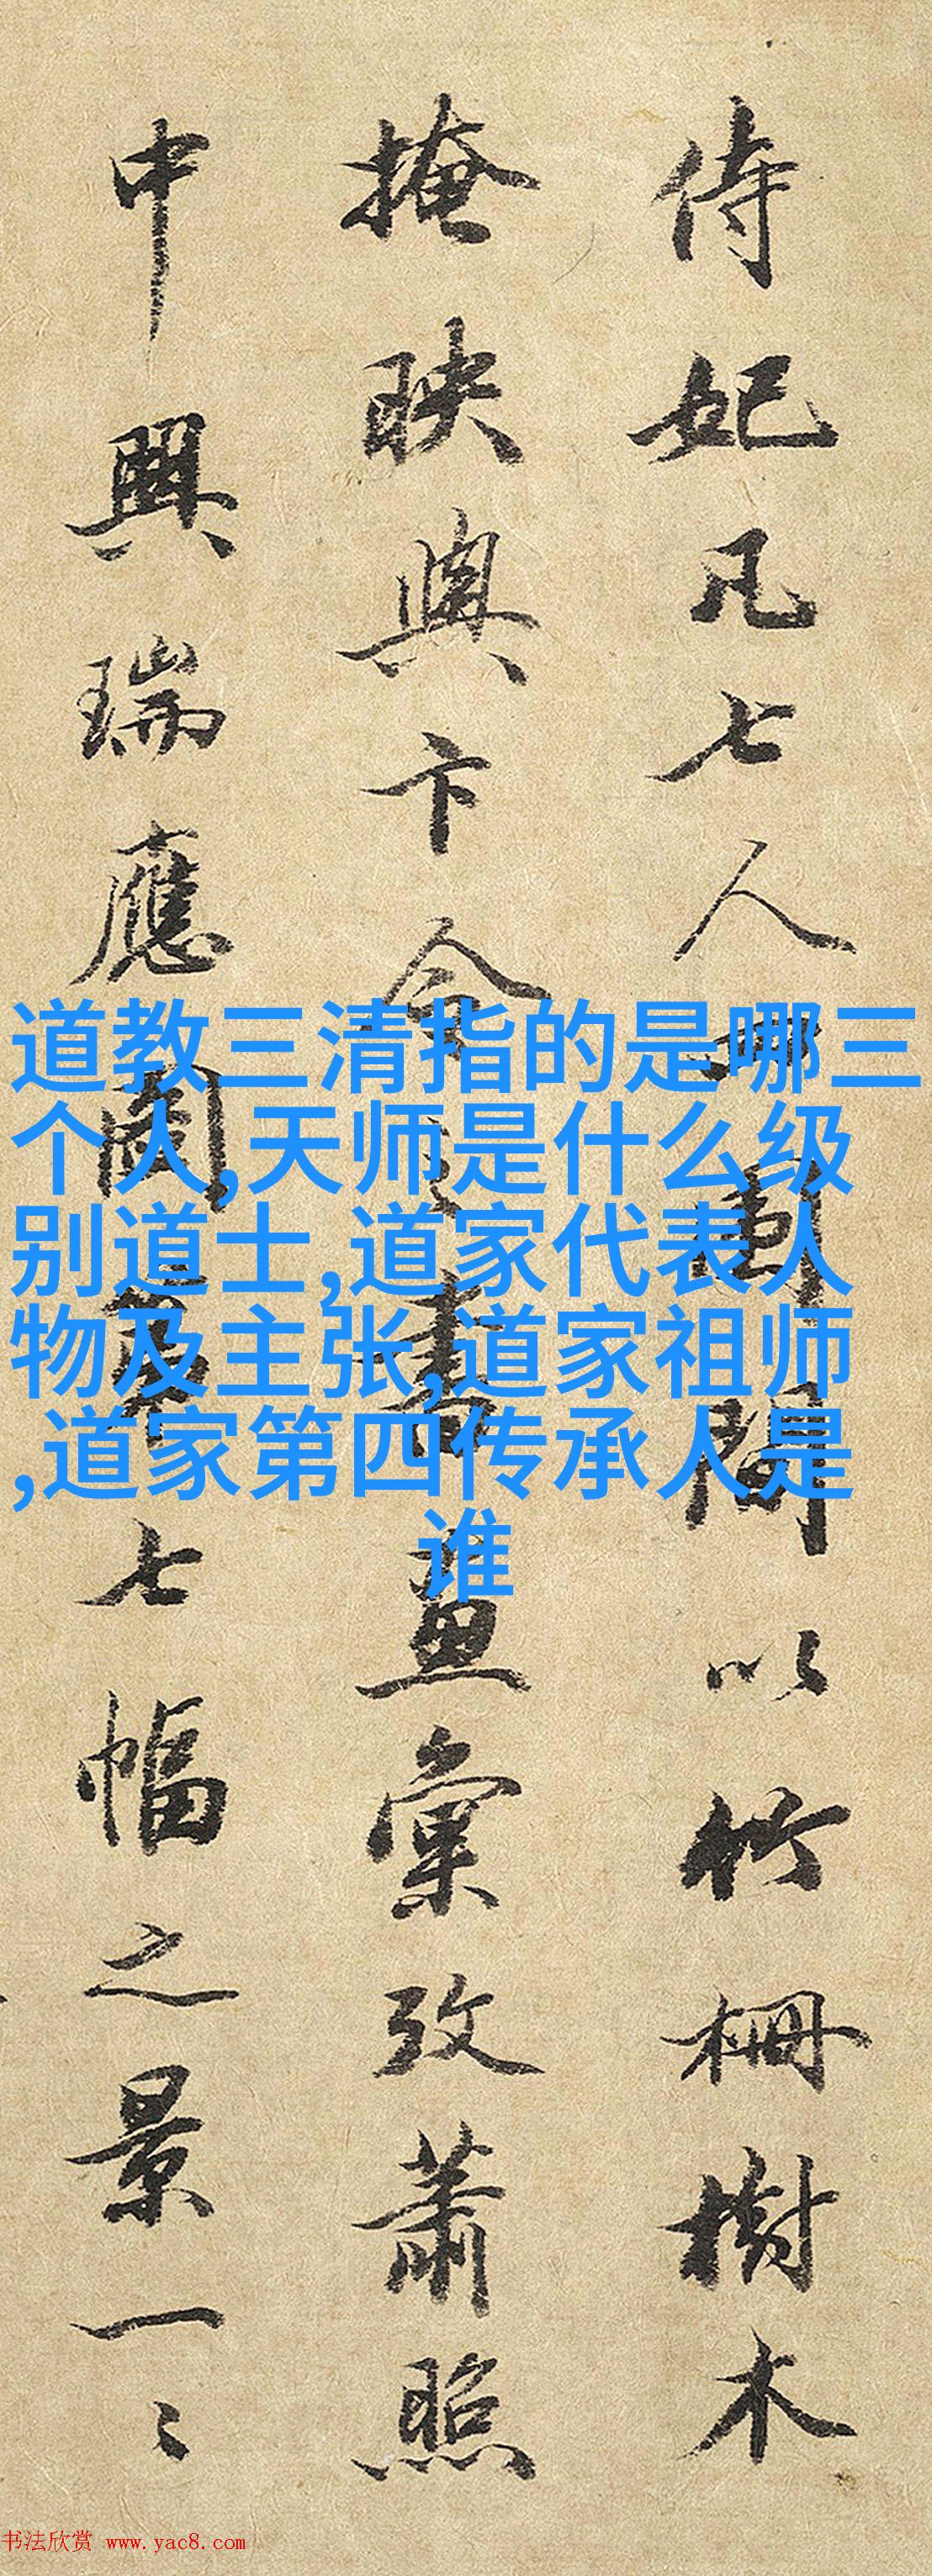 侍妃凡七人
以竹柵樹木
掩映與卞令
畫彙攷蕭照
中興瑞應圖
七幅之景一々
道教三清指的是哪三
个人,天师是什么级
别道士,道家代表人
物及主张,道家祖师
,道家第四传承人是
谁
书法欣赏 www.yac8.com